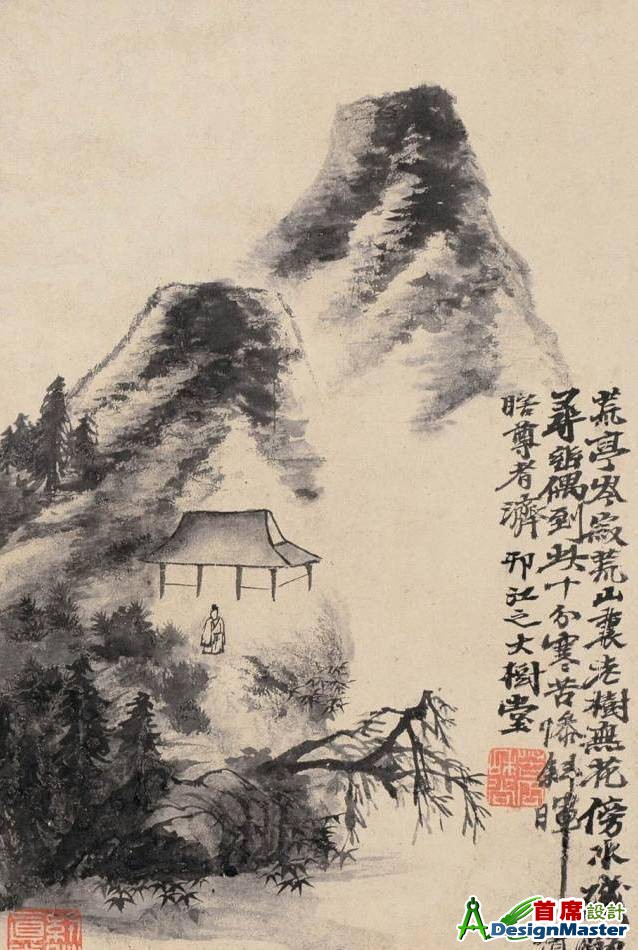 荒亭岑寂荒山裏老樹無花傍水
尋詣偶到此十分寒苦惨斜暉
瞎尊者濟 邗江之大樹堂
首席設計
ADesignMaster